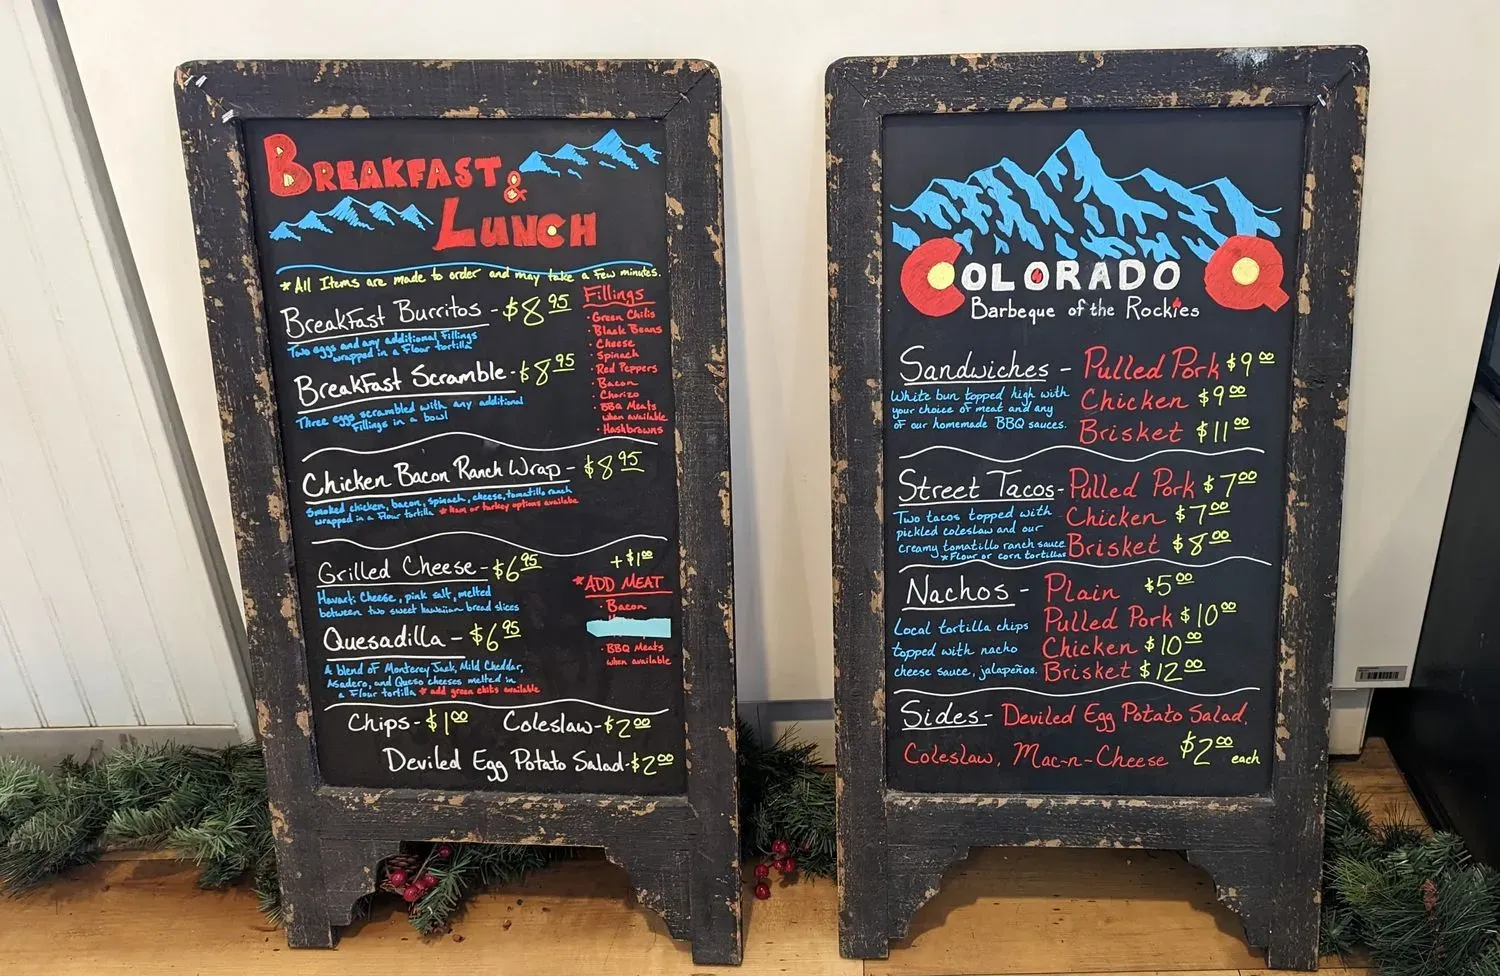 BREAKFAST
&
LUNCH
* All Items are made to order and may take a few minutes.
Breakfast Burritos - $8.95
Two eggs and any additional fillings
wrapped in a flour tortilla
Breakfast Scramble - $8.95
Three eggs scrambled with any additional
fillings in a bowl
Fillings
· Green Chilis
· Black Beans
· Cheese
· Spinach
· Red Peppers
· Bacon
· Chorizo
· BBQ Meats
when available
· Hashbrowns
Chicken Bacon Ranch Wrap - $8.95
Smoked chicken, bacon, spinach, cheese, tomatillo ranch
wrapped in a flour tortilla * ham or turkey options available
Grilled Cheese - $6.95
Havarti Cheese, pink salt, melted
between two sweet hawaiian bread slices
Quesadilla - $6.95
A blend of Monterey Jack, Mild Cheddar,
Asadero, and Queso cheeses melted in
a flour tortilla * add green chilis available
+ $1.00
* ADD MEAT
· Bacon
· BBQ Meats
when available
Chips - $1.00 Coleslaw - $2.00
Deviled Egg Potato Salad - $2.00
COLORADO Q
Barbeque of the Rockies
Sandwiches - Pulled Pork $9.00
Chicken $9.00
Brisket $11.00
White bun topped high with
your choice of meat and any
of our homemade BBQ sauces.
Street Tacos - Pulled Pork $7.00
Chicken $7.00
Brisket $8.00
Two tacos topped with
pickled coleslaw and our
creamy tomatillo ranch sauce
* Flour or corn tortillas
Nachos - Plain $5.00
Pulled Pork $10.00
Chicken $10.00
Brisket $12.00
Local tortilla chips
topped with nacho
cheese sauce, jalapeños.
Sides - Deviled Egg Potato Salad,
Coleslaw, Mac-n-Cheese $2.00 each